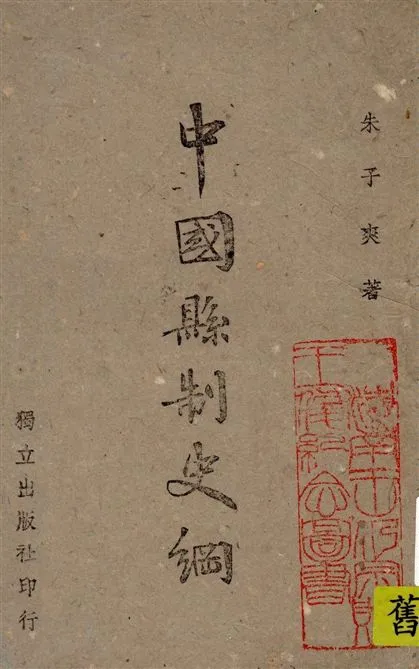 朱子爽著
中國縣制史綱
獨立出版社印行
舊